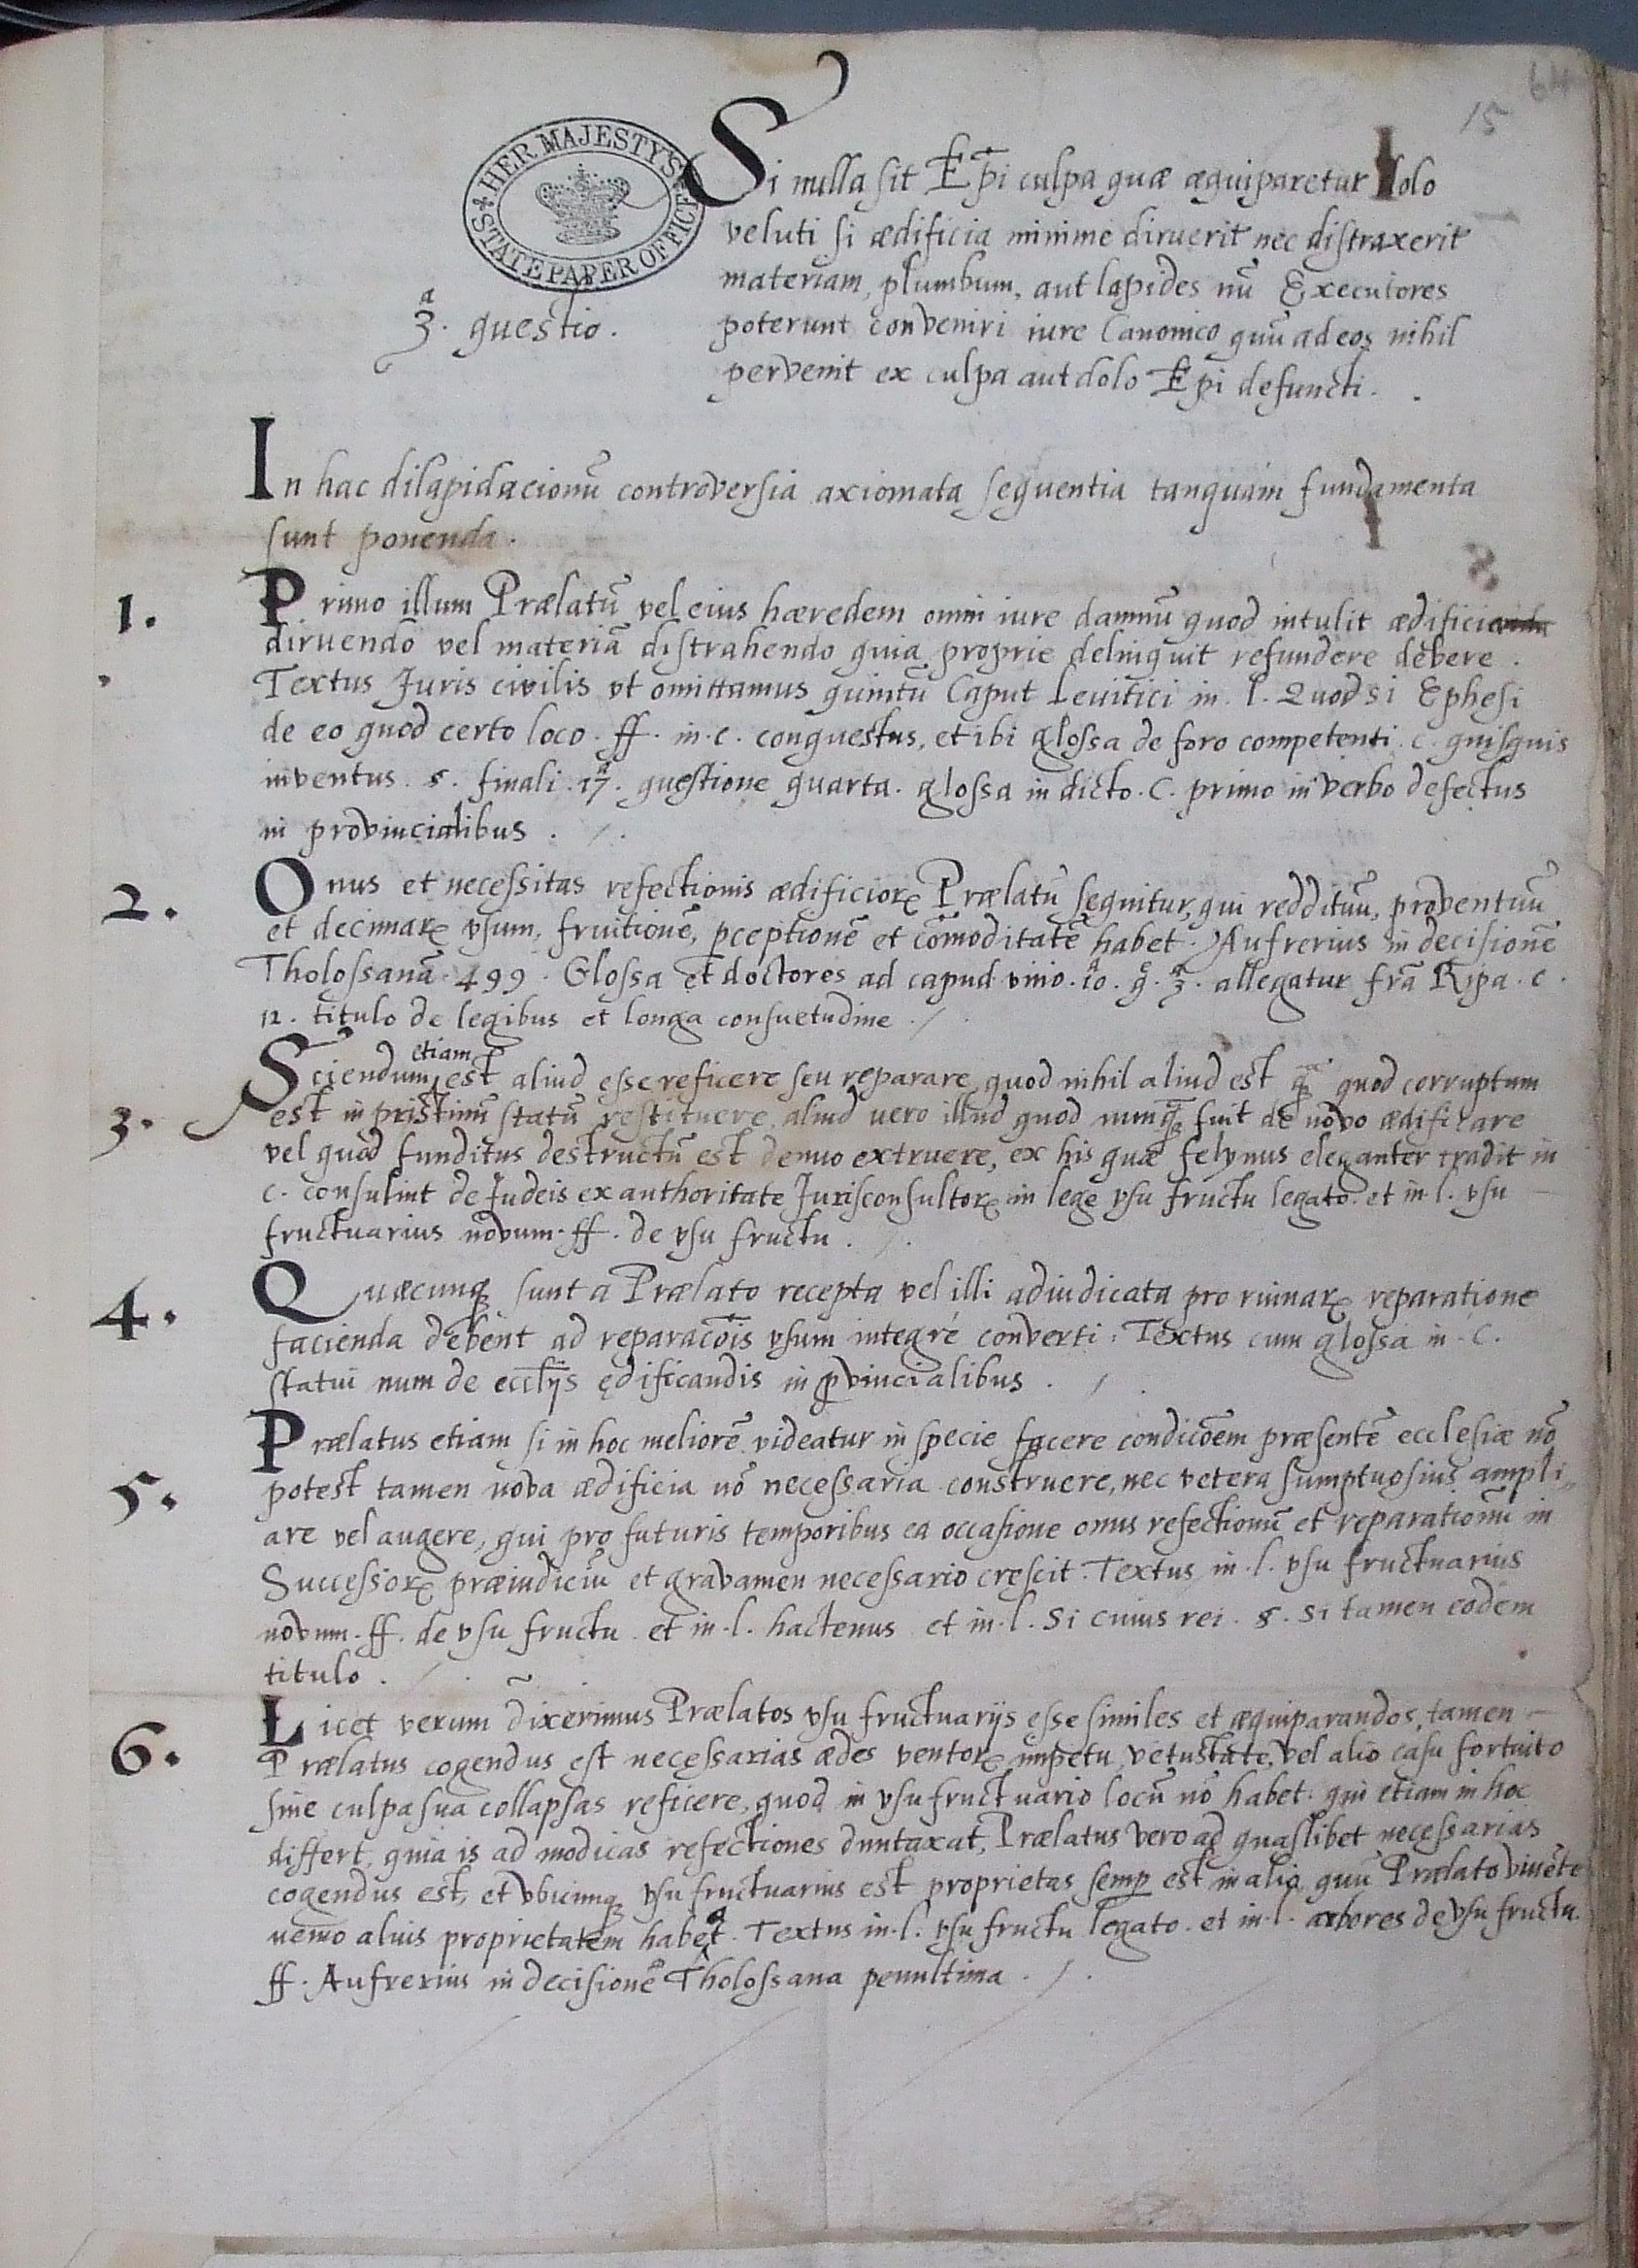 15 64
HER MAJESTY'S
STATE PAPER OFFICE
3.ª questio.
Si nulla sit Ep̄i culpa quæ æquiparetur dolo
veluti si ædificia minime diruerit nec distraxerit
materiam, plumbum, aut lapides nū Executores
poterunt conveniri iure Canonico quū ad eos nihil
pervenit ex culpa aut dolo Ep̄i defuncti.
In hac dilapidacionū controversia axiomata sequentia tanquam fundamenta
sunt ponenda.
1. Primo illum Prælatū vel eius hæredem omni iure damnū quod intulit ædificia
diruendo vel materiā distrahendo quia proprie delinquit refundere debere.
Textus Juris civilis vt omittamus quintū Caput Levitici in l. Quod si Ephesi
de eo quod certo loco. ff. in. c. conquestus, et ibi glossa de foro competenti. c. quisquis
inventus. §. finali. 17.ª questione quarta. glossa in dicto. C. primo in verbo defectus
in provincialibus.
2. Onus et necessitas refectionis ædificioꝝ Prælatū sequitur, qui reddituū, proventuū
et decimaꝝ vsum, fruitionē, ꝑceptionē et cōmoditatē habet. Aufrerius in decisione
Tholossanā. 499. Glossa et doctores ad capud vnio. 10.ª q. 3.ª allegatur frā Ripa. c.
12. titulo de legibus et longa consuetudine.
3. Sciendum etiam est aliud esse reficere seu reparare, quod nihil aliud est ꝙ̄ quod corruptum
est in pristinū statū restituere, aliud vero illud quod nunꝙ̄ fuit de novo ædificare
vel quod funditus destructū est denuo extruere, ex his quæ felynus eleganter tradit in
c. consuluit de Judeis ex authoritate Jurisconsultoꝝ in lege vsu fructu legato. et in l. vsu
fructuarius novum. ff. de vsu fructu.
4. Quæcunqꝫ sunt a Prælato recepta vel illi adiudicata pro ruinaꝝ reparatione
facienda debent ad reparacōis vsum integrè converti: Textus cum glossa in. C.
statui num de eccl̄ijs ędificandis in ꝓvincialibus.
5. Prælatus etiam si in hoc meliorē videatur in specie facere condicōem præsentē ecclesiæ nō
potest tamen nova ædificia nō necessaria construere, nec vetera sumptuosius ampli„
are vel augere, qui pro futuris temporibus ea occasione onus refectionū et reparationū in
Successoꝝ præiudiciū et gravamen necessario crescit. Textus in. l. vsu fructuarius
novum. ff. de vsu fructu et in. l. hactenus et in. l. si cuius rei. §. si tamen eodem
titulo.
6. Licet verum dixerimus Prælatos vsu fructuarijs esse similes et æquiparandos, tamen
Prælatus cogendus est necessarias ædes ventoꝝ impetu, vetustate, vel alio casu fortuito
sine culpa sua collapsas reficere, quod in vsu fructuario locū nō habet. qui etiam in hoc
differt, quia is ad modicas refectiones duntaxat, Prælatus vero ad quaslibet necessarias
cogendus est, et vbicunqꝫ vsu fructuarius est proprietas semꝑ est in alio quū Prælato vivēte
nemo alius proprietatem habeat. Textus in. l. vsu fructu legato. et in. l. arbores de vsu fructu.
ff. Aufrerius in decisionē Tholossana penultima.